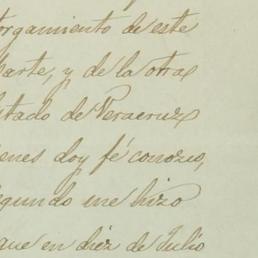 orgamiento de este
parte, y de la otra
stado de Veracruz
ienes doy fé conozco,
egundo me hizo
que en diez de Julio